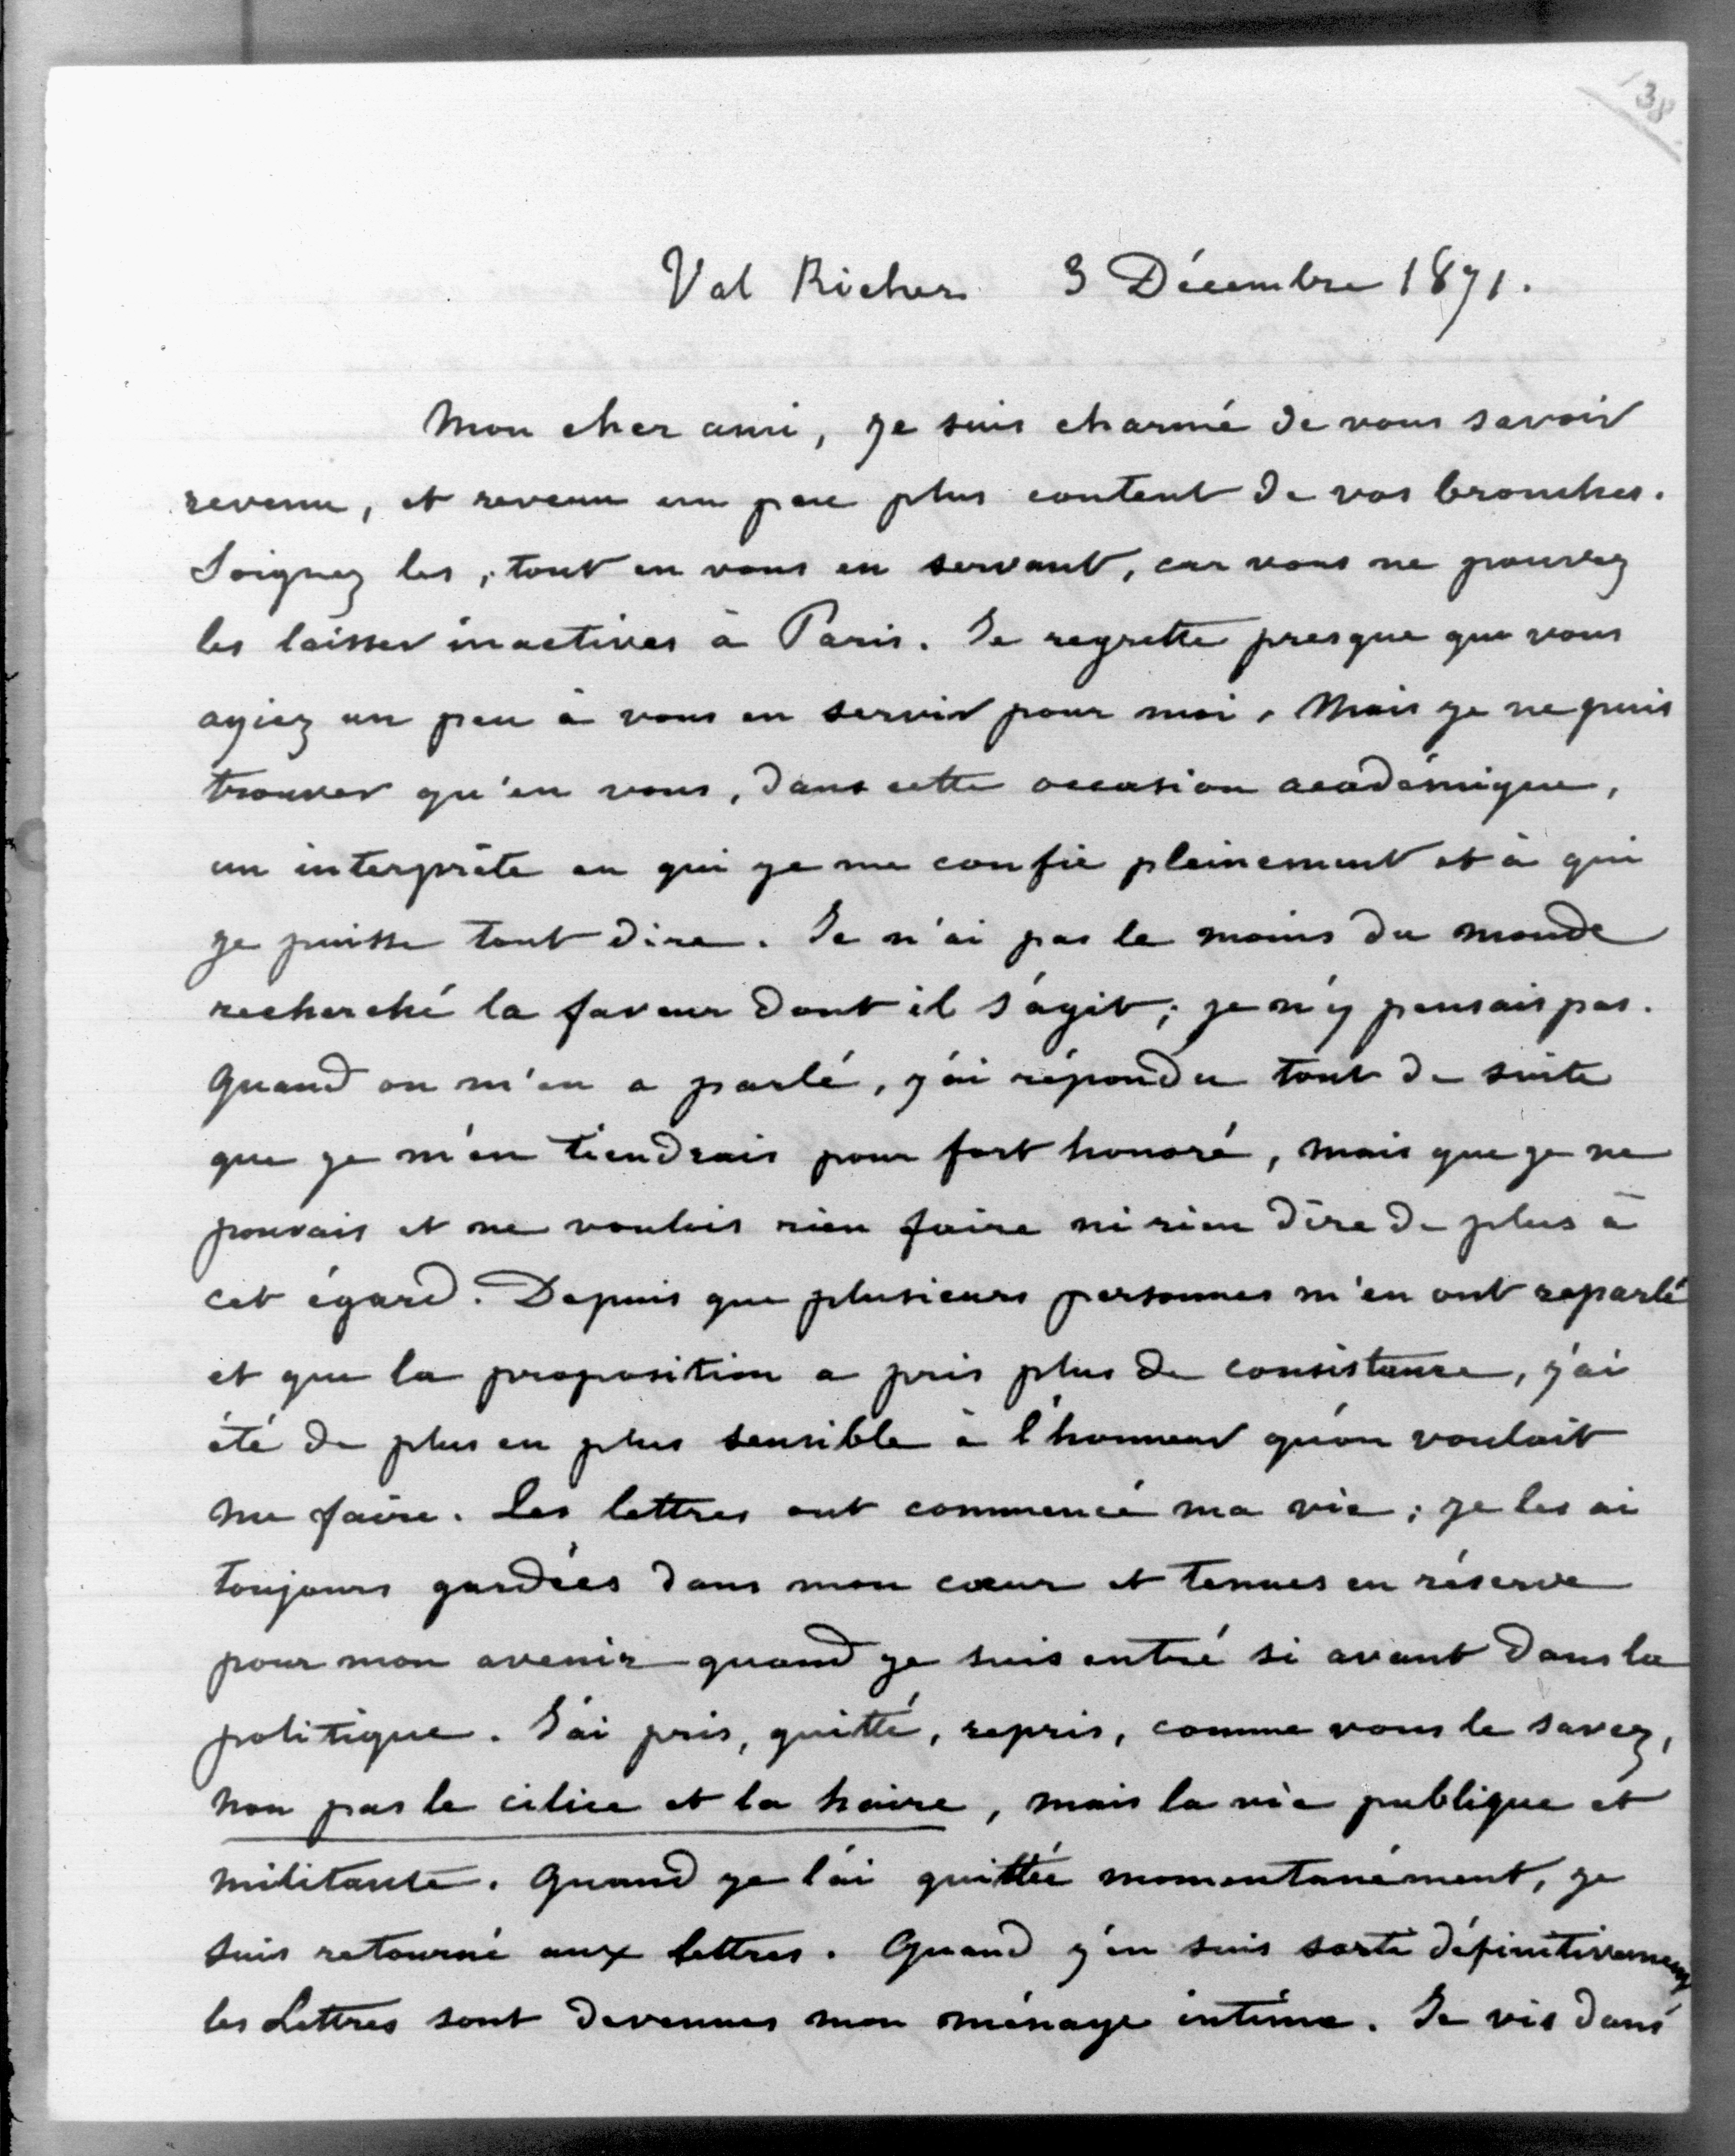 138
Val Richer 3 Décembre 1871.
Mon cher ami, je suis charmé de vous savoir
revenu, et revenu un peu plus content de vos bronches.
Soignez les, tout en vous en servant, car vous ne pouvez
les laisser inactives à Paris. Je regrette presque que vous
ayiez un peu à vous en servir pour moi. Mais je ne puis
trouver qu'en vous, dans cette occasion académique,
un interprète en qui je me confie pleinement et à qui
je puisse tout dire. Je n'ai pas le moins du monde
recherché la faveur dont il s'agit ; je n'y pensais pas.
Quand on m'en a parlé, j'ai répondu tout de suite
que je m'en tiendrais pour fort honoré, mais que je ne
pouvais et ne voulois rien faire ni rien dire de plus à
cet égard. Depuis que plusieurs personnes m'en ont reparlé
et que la proposition a pris plus de consistance, j'ai
été de plus en plus sensible à l'honneur qu'on voulait
me faire. Les lettres ont commencé ma vie ; je les ai
toujours gardées dans mon cœur et tenues en réserve
pour mon avenir quand je suis entré si avant dans la
politique. J'ai pris, quitté, repris, comme vous le savez,
non pas le cilice et la haire, mais la vie publique et
militante. Quand je l'ai quittée momentanément, je
suis retourné aux lettres. Quand j'en suis sorti définitivement
les Lettres sont devenues mon ménage intime. Je vis dans